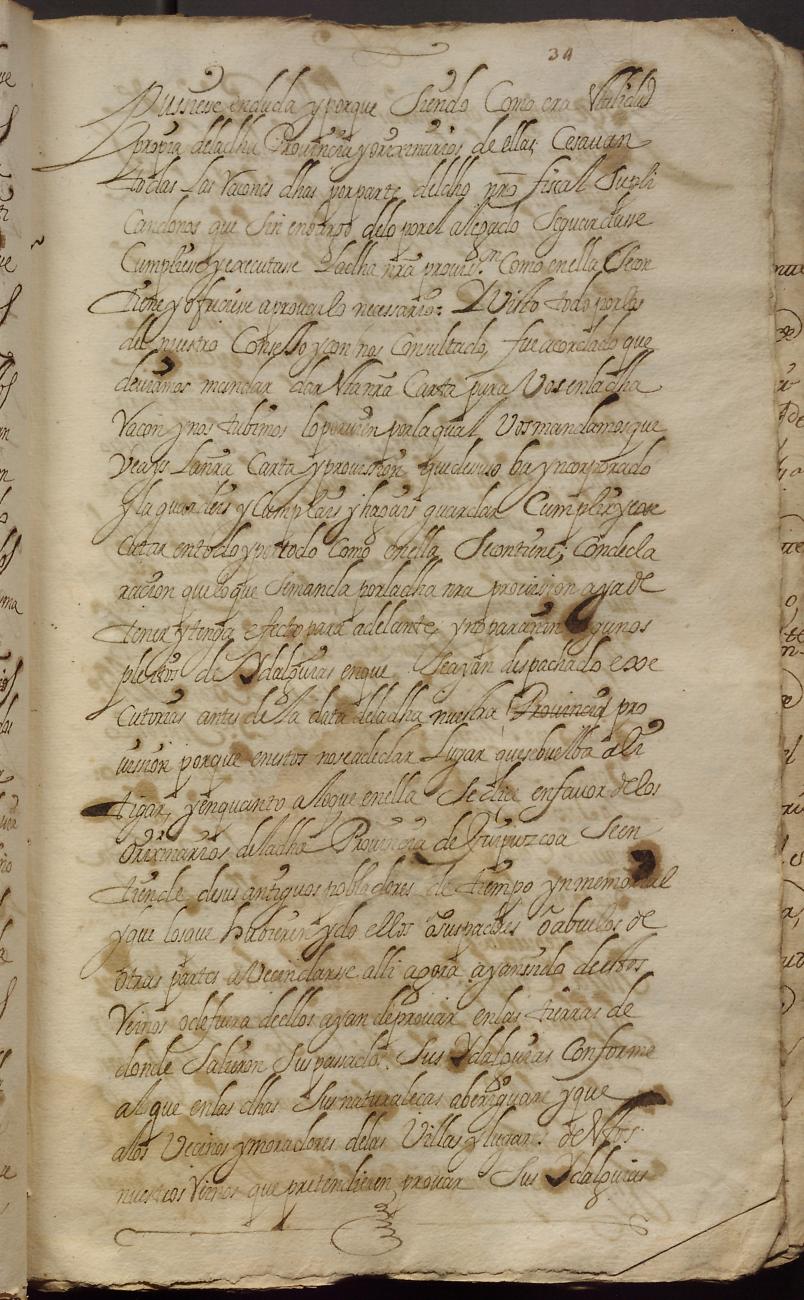 34
Pussiese en duda y porque Siendo Como era Utilidad
propia de la dha Provincia y oreginarios de ellas Cesavan
todas Las Raçones dhas por parte del dho nro fiscal Supli
Candonos que Sin enbargo de lo por el alegado Seguardase
Cumpliese y executase La dha nra provisn Como en ella Secon
tiene y ofreciese a provar lo necesario: Y Visto todo por los
del nuestro Consejo y con nos Consultado, fue acordado que
deviamos mandar dar Esta nra Carta para Vos en la dha
Raçon y nos tubimos lo por vien por la qual Vos mandamos que
Veays La nra Carta y provission que de suso ba yncorporado
y la guardeis y Cumplais y hagais guardar Cumplir y exe
Cutar en todo y por todo Como en ella Secontiene, Con decla
racion que lo que Semanda por la dha nra provision aya de
tener y tenga efecto para adelante, y no para en algunos
pleitos de Ydalguias en que Seayan despachado exe
Cutorias antes de la data de la dha nuestra Provincia pro
vision porque en estos no sea de dar Lugar que se buelba a li
tigar, y en quanto a lo que en ella Se dice en favor de los
oreginarios de la dha Provincia de Guipuzcoa Seen
tiende de sus antiguos pobladores de tiempo ynmemorial
y que los que hubieren ydo ellos o sus padres o abuelos de
otras partes a Vecindarse alli agora ayan sido de estos
Reinos o de fuera de ellos ayan de provar en las tierras de
donde Salieron Sus pasados Sus Ydalguias Conforme
a lo que en las dhas Sus naturalecas aberiguare y que
a los Vecinos y moradores de las Villas y lugars de estos
nuestros Reinos que pretendieren provar Sus Ydalguias